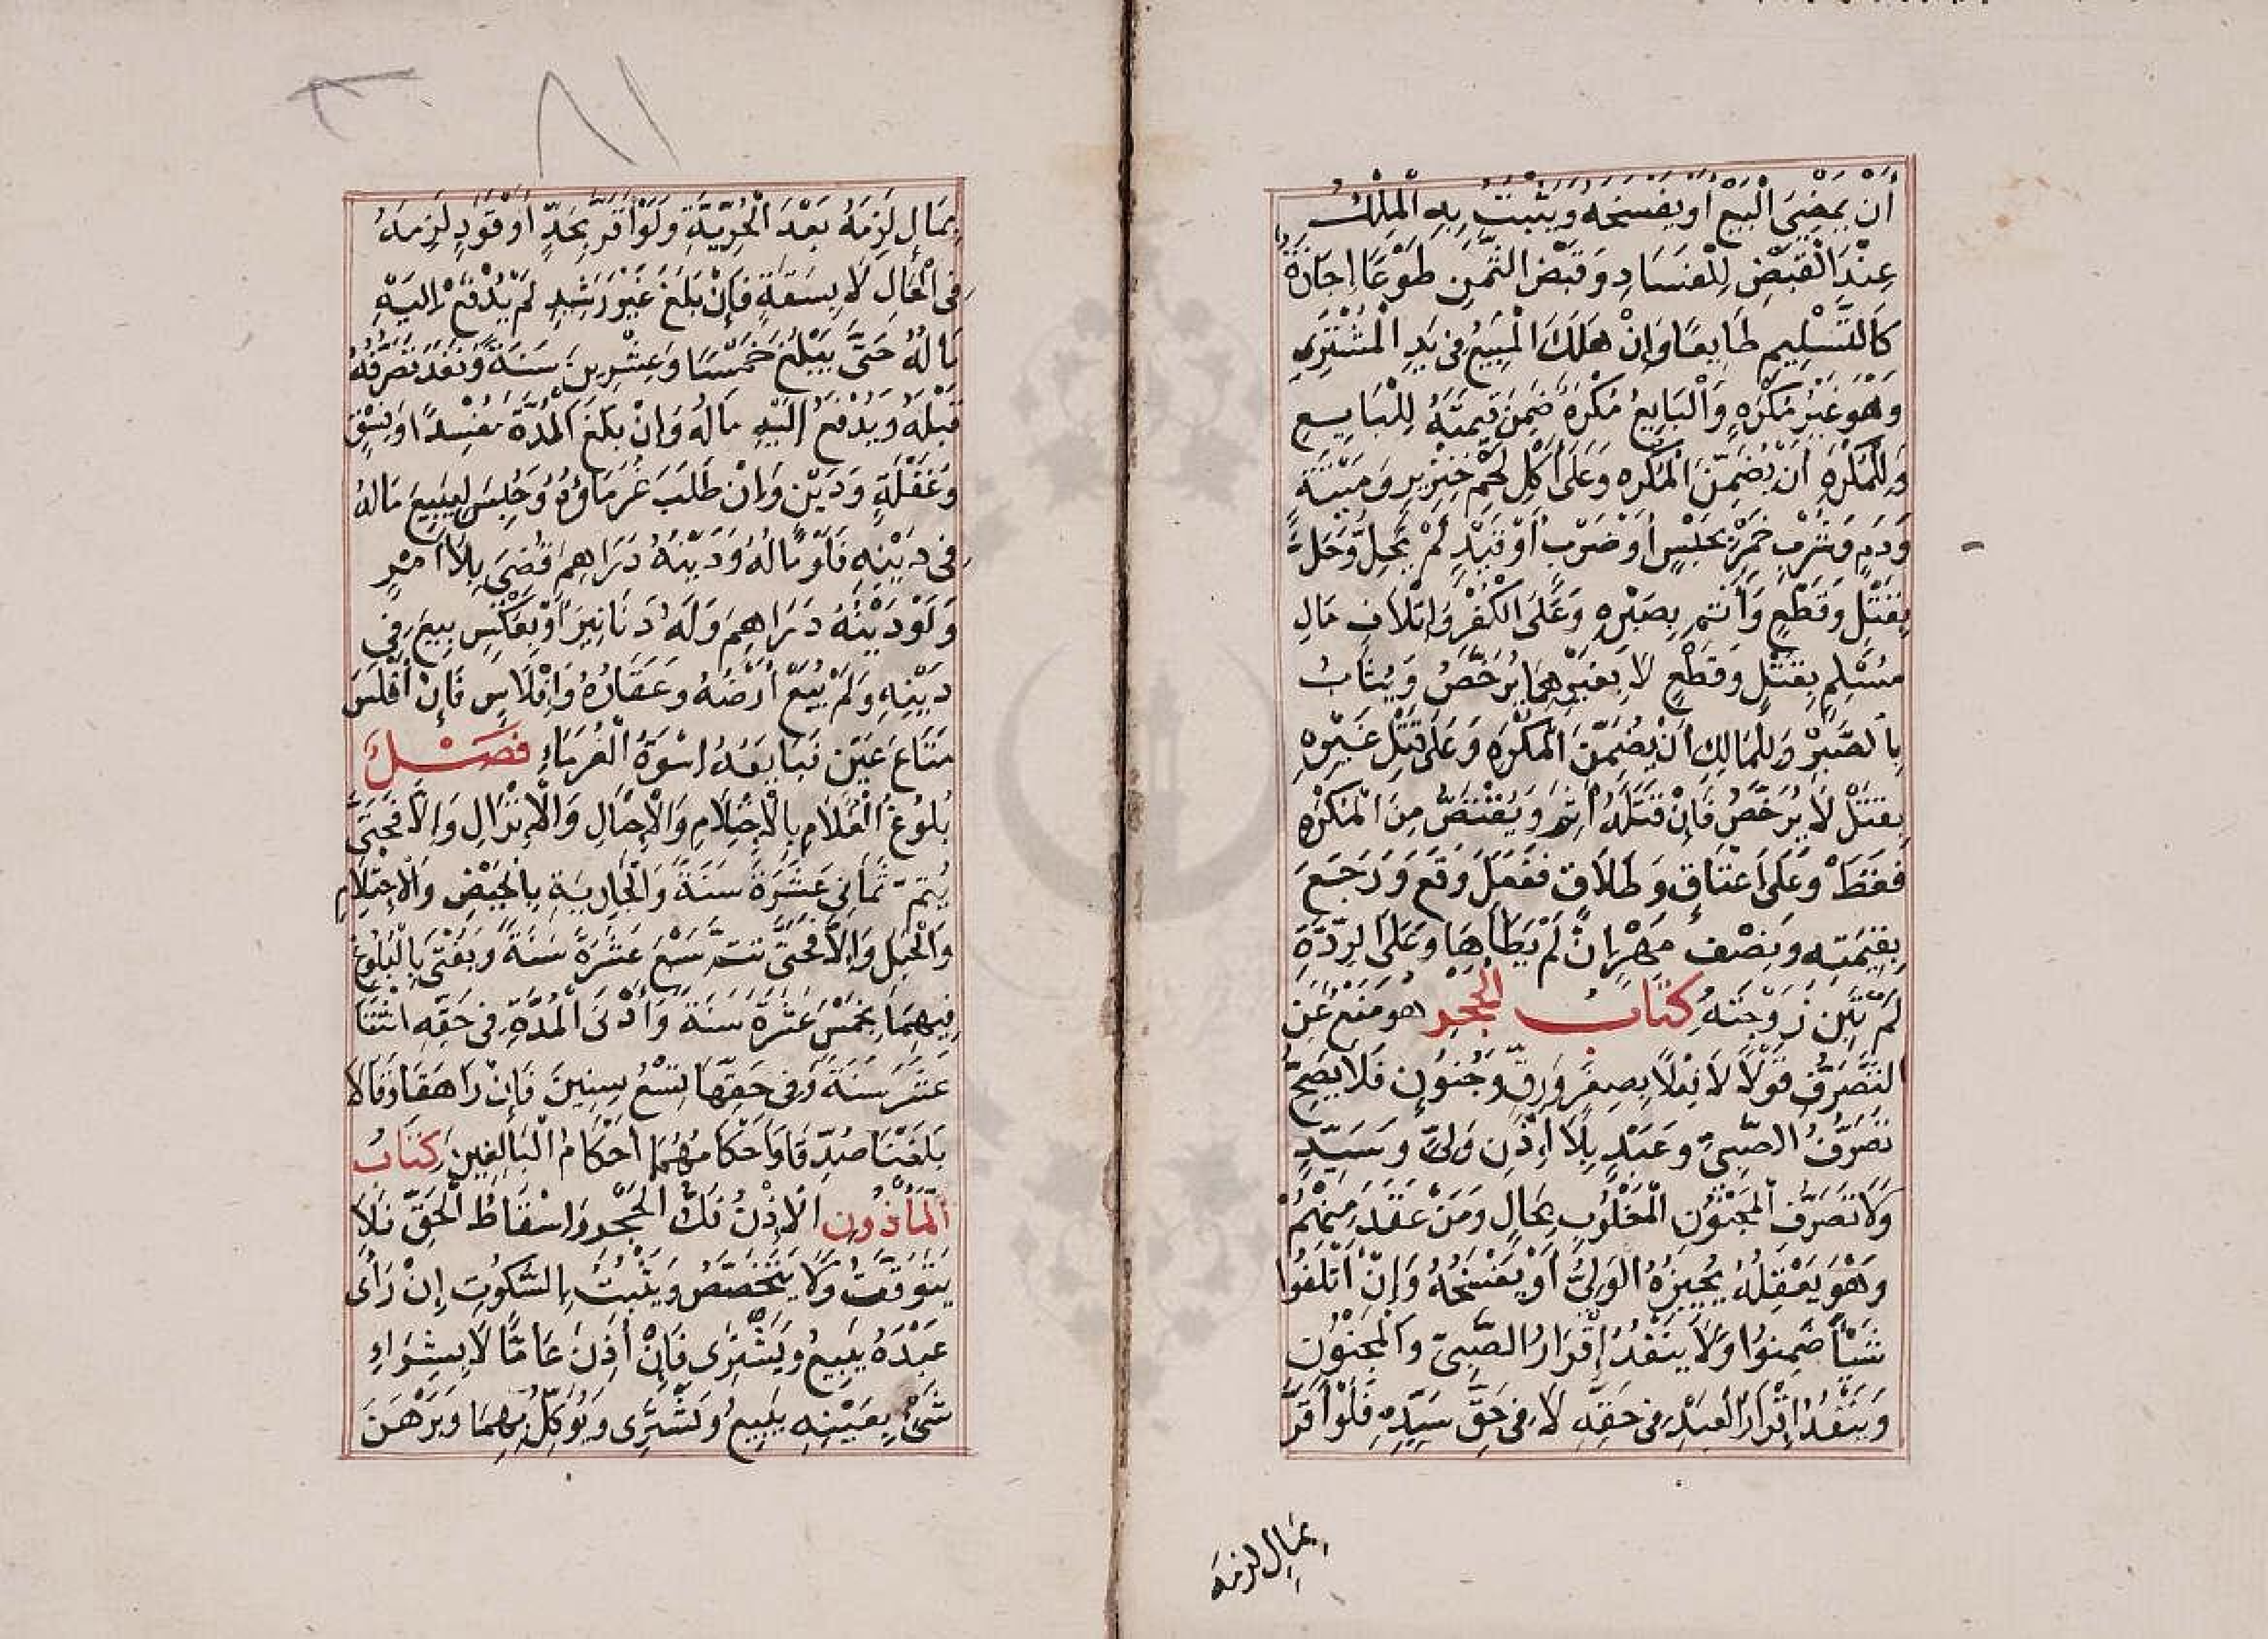 أَنْ يُمْضِيَ الْبَيْعَ أَوْ يَفْسَخَهُ وَيَثْبُتُ بِهِ الْمِلْكُ
عِنْدَ الْقَبْضِ لِلْفَسَادِ وَقَبْضُ الثَّمَنِ طَوْعًا اِجَازَةٌ
كَالتَّسْلِيمِ طَايِعًا وَاِنْ هَلَكَ الْمَبِيعُ فِى يَدِ الْمُشْتَرِى
وَهُوَ غَيْرُ مُكْرَهٍ وَالْبَايِعُ مُكْرَهٌ ضَمِنَ قِيمَتَهُ لِلْبَايِعِ
وَلِلْمُكْرَهِ اَنْ يُضَمِّنَ الْمُكْرِهَ وَعَلَى اَكْلِ لَحْمِ خِنْزِيرٍ وَمَيْتَةٍ
وَدَمٍ وَشُرْبِ خَمْرٍ بِحَبْسٍ أَوْ ضَرْبٍ أَوْ قَيْدٍ لَمْ يَحِلَّ وَحَلَّ
بِقَتْلٍ وَقَطْعٍ وَأَثِمَ بِصَبْرِهِ وَعَلَى الْكُفْرِ وَاِتْلَافِ مَالِ
مُسْلِمٍ بِقَتْلٍ وَقَطْعٍ لَا بِغَيْرِهِمَا يُرَخَّصُ وَيُثَابُ
بِالصَّبْرِ وَلِلْمَالِكِ أَنْ يُضَمِّنَ الْمُكْرِهَ وَعَلَى قَتْلِ غَيْرِهِ
بِقَتْلٍ لَا يُرَخَّصُ فَاِنْ قَتَلَهُ أَثِمَ وَيُقْتَصُّ مِنَ الْمُكْرِهِ
فَقَطْ وَعَلَى اَعْتَاقٍ وَطَلَاقٍ فَفَعَلَ وَقَعَ وَرَجَعَ
بِقِيمَتِهِ وَبِنِصْفِ مَهْرِ اِنْ لَمْ يَطَأْهَا وَعَلَى الرِّدَّةِ
لَمْ تَبِنْ زَوْجَتُهُ كتَابُ الْحَجْرِ هُوَ مَنْعٌ عَنِ
التَّصَرُّفِ قَوْلًا لَا فِعْلًا بِصِغَرٍ وَرِقٍّ وَجُنُونٍ فَلَا يَصِحُّ
تَصَرُّفُ الصَّبِىِّ وَعَبْدٍ بِلَا اِذْنِ وَلِىٍّ وَسَيِّدٍ
وَلَا تَصَرُّفُ الْمَجْنُونِ الْمَغْلُوبِ بِحَالٍ وَمَنْ عَقَدَ مِنْهُمْ
وَهُوَ يَعْقِلُهُ يُجِيزُهُ الْوَلِىُّ أَوْ يَفْسَخُهُ وَإِنْ أَتْلَفُوا
شَيْأً ضَمِنُوا وَلَا يَنْفُذُ إِقْرَارُ الصَّبِىِّ وَالْمَجْنُونِ
وَيَنْفُذُ اِقْرَارُ الْعَبْدِ فِى حَقِّهِ لَا فِى حَقِّ سَيِّدِهِ فَلَوْ أَقَرَّ
بمَالٍ لزمَهُ
بِمَالٍ لَزِمَهُ بَعْدَ الْحُرِّيَّةِ وَلَوْ أَقَرَّ بِحَدٍّ أَوْ قَوَدٍ لَزِمَهُ
فِى الْحَالِ لَا بِسَفَهٍ فَإِنْ بَلَغَ غَيْرَ رَشِيدٍ لَمْ يُدْفَعْ اِلَيْهِ
مَالُهُ حَتَّى يَبْلُغَ خَمْسًا وَعِشْرِينَ سَنَةً وَنَفَذَ تَصَرُّفُهُ
قَبْلَهُ وَيُدْفَعُ اِلَيْهِ مَالُهُ وَاِنْ بَلَغَ الْمُدَّةَ مُفْسِدًا وَفِسْقٍ
وَغَفْلَةٍ وَدَيْنٍ وَاِنْ طَلَبَ غُرَمَاؤُهُ وَحُبِسَ لِيَبِيعَ مَالَهُ
فِى دَيْنِهِ فَلَوْ مَالُهُ وَدَيْنُهُ دَرَاهِمَ قُضِىَ بِلَا اَمْرِهِ
وَلَوْ دَيْنُهُ دَرَاهِمَ وَلَهُ دَنَانِيرُ أَوْ بِعَكْسٍ بِيعَ فِى
دَيْنِهِ وَلَمْ يُبَعْ أَرْضُهُ وَعَقَارُهُ وَاِفْلَاسٍ فَإِنْ أَفْلَسَ
مَتَاعَ عَيْنٍ فَبَايَعَهُ اُسْوَةُ الْغُرَمَاءِ فَصْلٌ
بُلُوغُ الْغُلَامِ بِالْاِحْتِلَامِ وَالْاِحْبَالِ وَالْاِنْزَالِ وَاِلَّا فَحَتَّى
يُتِمَّ ثَمَانِىَ عَشَرَةَ سَنَةً وَالْجَارِيَةِ بِالْحَيْضِ وَالْاِحْتِلَامِ
وَالْحَبَلِ وَاِلَّا فَحَتَّى تتِمَّ سَبْعَ عَشَرَةَ سَنَةً وَيُفْتَى بِالْبُلُوغِ
فِيهِمَا بِخَمْسَ عَشَرَةَ سَنَةً وَأَدْنَى الْمُدَّةِ فِى حَقِّهِ اثْنَتَا
عَشَرَ سَنَةً وَفِى حَقِّهَا تِسْعُ سِنِينَ فَإِنْ رَاهَقَا وَقَالَا
بَلَغْنَا صُدِّقَا وَأَحْكَامُهُمَا أَحْكَامُ الْبَالِغِينَ كتَابُ
الْمَأْذُونِ الْاِذْنُ فَكُّ الْحَجْرِ وَاِسْقَاطُ الْحَقِّ فَلَا
يَتَوَقَّتُ وَلَا يَتَخَصَّصُ وَيَثْبُتُ بِالسُّكُوتِ إِنْ رَأَى
عَبْدَهُ يَبِيعُ وَيَشْتَرِى فَإِنْ أَذِنَ عَامًّا لَا بِشِرَاءِ
شَىْءٍ بِعَيْنِهِ يَبِيعُ وَيَشْتَرِى وَيُوَكِّلُ بِهِمَا وَيَرْهَنُ